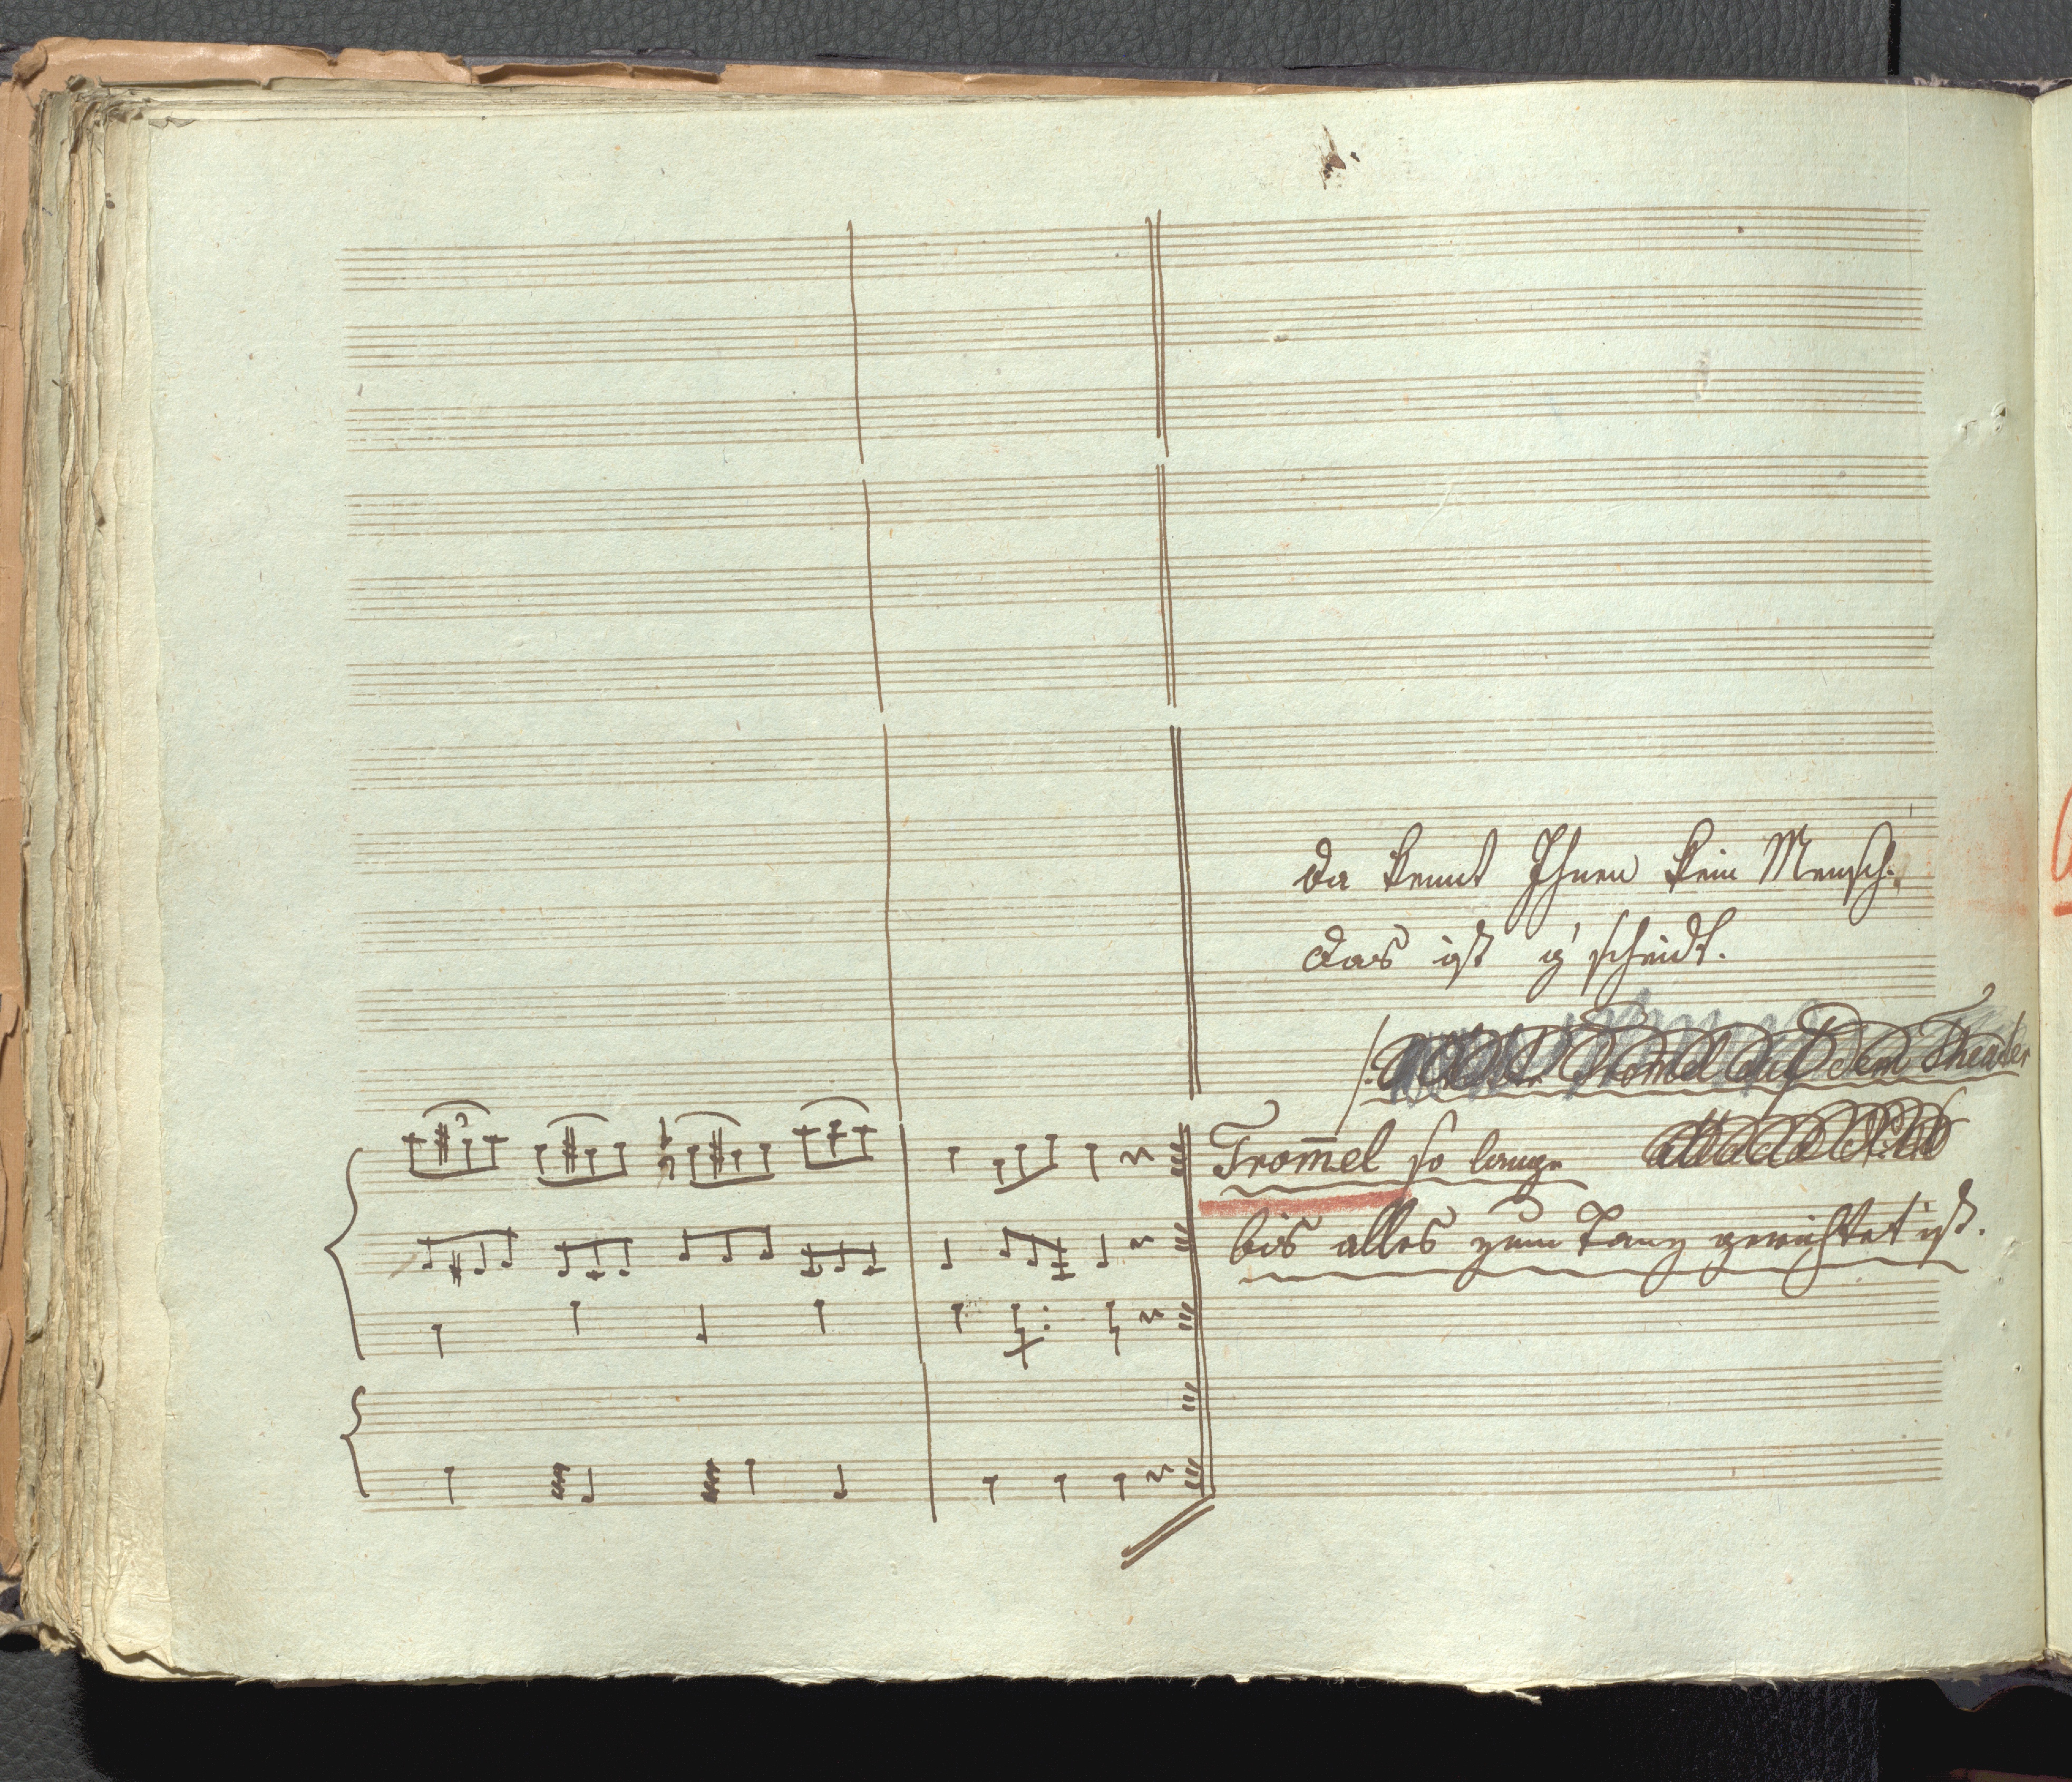 da kennt Ihnen kein Mensch.
das ist g'scheidt.
Trom̅el auf dem Theater
Trom̅el so lange
bis alles zum Tanz gerichtet ist.